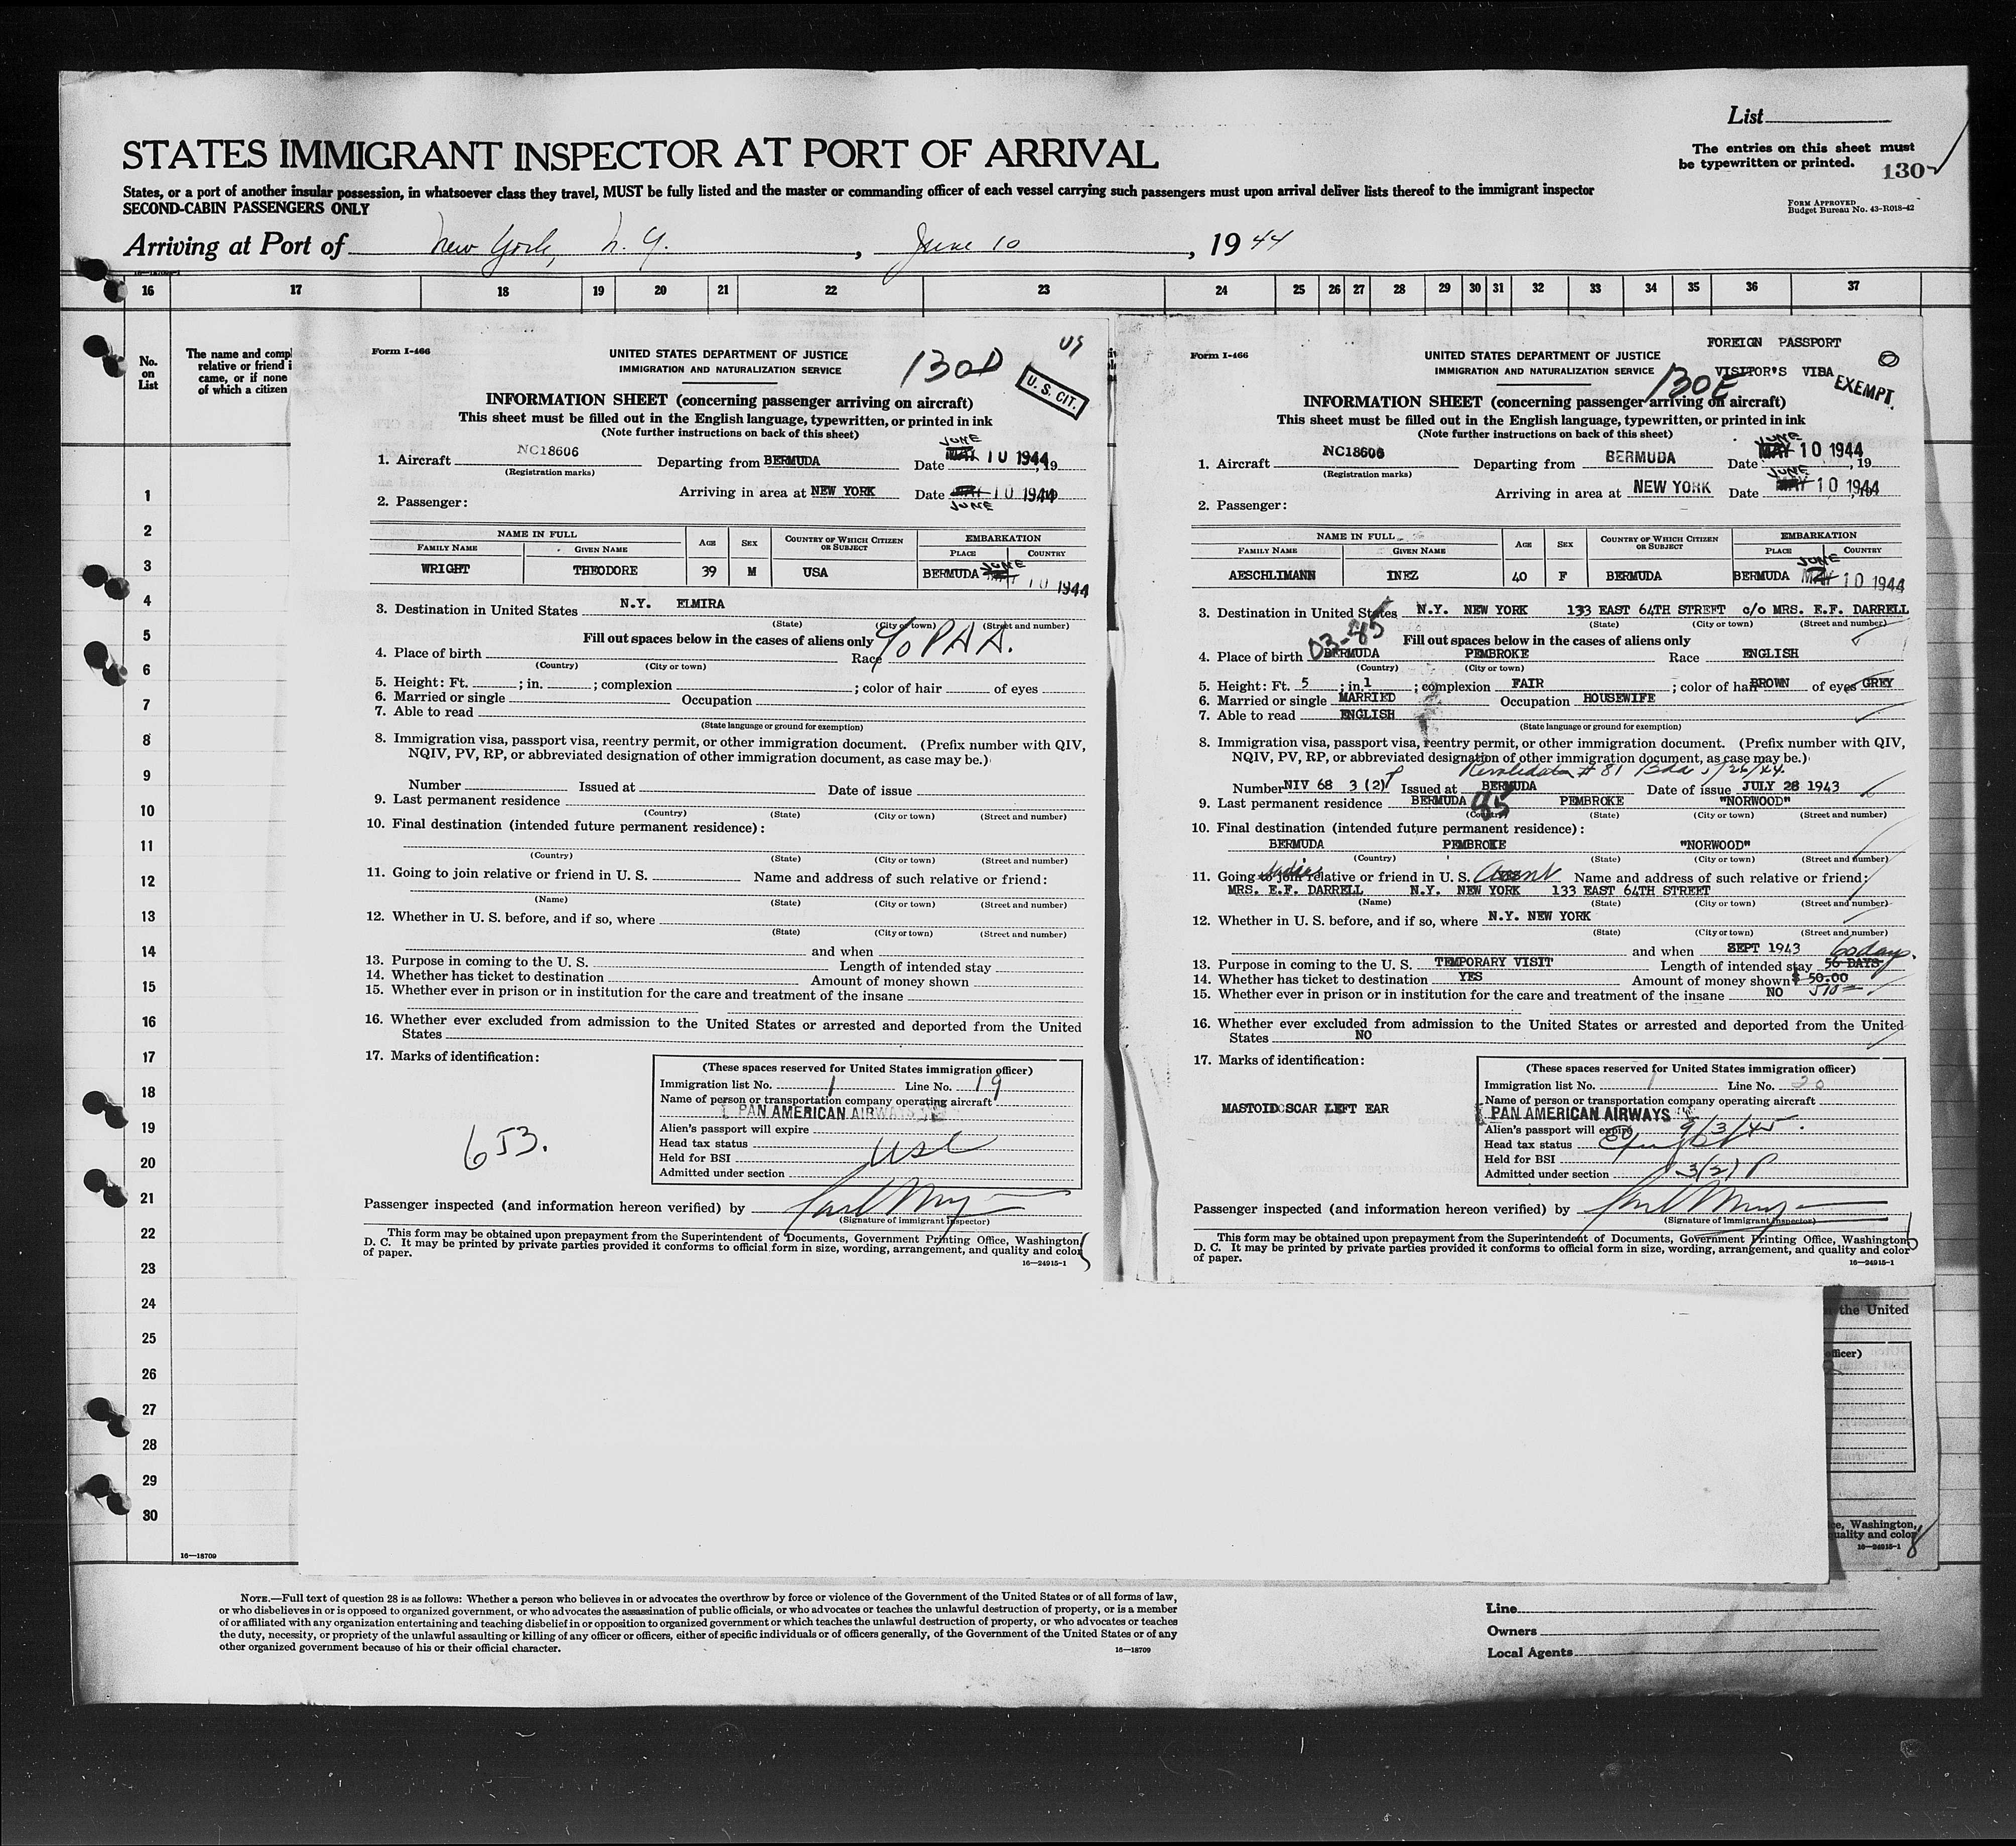 List
STATES IMMIGRANT INSPECTOR AT PORT OF ARRIVAL
The entries on this sheet must
be typewritten or printed.
130
States, or a port of another insular possession, in whatsoever class they travel, MUST be fully listed and the master or commanding officer of each vessel carrying such passengers must upon arrival deliver lists thereof to the immigrant inspector
SECOND-CABIN PASSENGERS ONLY
FORM APPROVED
Budget Bureau No. 43-R018-42
Arriving at Port of New York, N. Y. , June 10 , 19 44
16 17 18 19 20 21 22 23 24 25 26 27 28 29 30 31 32 33 34 35 36 37
No.
on
List
The name and compl
relative or friend i
came, or if none
of which a citizen
1
2
3
4
5
6
7
8
9
10
11
12
13
14
15
16
17
18
19
20
21
22
23
24
25
26
27
28
29
30
16—18709
Form I-466
UNITED STATES DEPARTMENT OF JUSTICE
IMMIGRATION AND NATURALIZATION SERVICE
130D
US
U. S. CIT.
INFORMATION SHEET (concerning passenger arriving on aircraft)
This sheet must be filled out in the English language, typewritten, or printed in ink
(Note further instructions on back of this sheet)
JUNE
1. Aircraft NC18606 Departing from BERMUDA Date MAY 10 1944, 19
(Registration marks)
Arriving in area at NEW YORK Date MAY 10 1944
JUNE
2. Passenger:
NAME IN FULL AGE SEX COUNTRY OF WHICH CITIZEN OR SUBJECT EMBARKATION
FAMILY NAME GIVEN NAME PLACE COUNTRY
WRIGHT THEODORE 39 M USA BERMUDA JUNE MAY 10 1944
3. Destination in United States N.Y. ELMIRA
(State) (City or town) (Street and number)
Fill out spaces below in the cases of aliens only c/o PAA.
4. Place of birth Race
(Country) (City or town)
5. Height: Ft. ; in. ; complexion ; color of hair of eyes
6. Married or single Occupation
7. Able to read
(State language or ground for exemption)
8. Immigration visa, passport visa, reentry permit, or other immigration document. (Prefix number with QIV,
NQIV, PV, RP, or abbreviated designation of other immigration document, as case may be.)
Number Issued at Date of issue
9. Last permanent residence
(Country) (State) (City or town) (Street and number)
10. Final destination (intended future permanent residence):
(Country) (State) (City or town) (Street and number)
11. Going to join relative or friend in U. S. Name and address of such relative or friend:
(Name) (State) (City or town) (Street and number)
12. Whether in U. S. before, and if so, where
(State) (City or town) (Street and number)
and when
13. Purpose in coming to the U. S. Length of intended stay
14. Whether has ticket to destination Amount of money shown
15. Whether ever in prison or in institution for the care and treatment of the insane
16. Whether ever excluded from admission to the United States or arrested and deported from the United
States
17. Marks of identification:
653.
(These spaces reserved for United States immigration officer)
Immigration list No. 1 Line No. 19
Name of person or transportation company operating aircraft
PAN AMERICAN AIRWAYS
Alien's passport will expire
Head tax status USC
Held for BSI
Admitted under section
Passenger inspected (and information hereon verified) by
(Signature of immigrant inspector)
This form may be obtained upon prepayment from the Superintendent of Documents, Government Printing Office, Washington,
D. C. It may be printed by private parties provided it conforms to official form in size, wording, arrangement, and quality and color
of paper.
16—24915-1
Form I-466
UNITED STATES DEPARTMENT OF JUSTICE
IMMIGRATION AND NATURALIZATION SERVICE
FOREIGN PASSPORT
VISITOR'S VISA
EXEMPT.
130E
INFORMATION SHEET (concerning passenger arriving on aircraft)
This sheet must be filled out in the English language, typewritten, or printed in ink
(Note further instructions on back of this sheet)
JUNE
1. Aircraft NC18606 Departing from BERMUDA Date MAY 10 1944, 19
(Registration marks)
JUNE
Arriving in area at NEW YORK Date MAY 10 1944
2. Passenger:
NAME IN FULL AGE SEX COUNTRY OF WHICH CITIZEN OR SUBJECT EMBARKATION
FAMILY NAME GIVEN NAME PLACE COUNTRY
AESCHLIMANN INEZ 40 F BERMUDA BERMUDA JUNE MAY 10 1944
3. Destination in United States N.Y. NEW YORK 133 EAST 64TH STREET c/o MRS. E.F. DARRELL
(State) (City or town) (Street and number)
03-85
Fill out spaces below in the cases of aliens only
4. Place of birth BERMUDA PEMBROKE Race ENGLISH
(Country) (City or town)
5. Height: Ft. 5 ; in. 1 ; complexion FAIR ; color of hair BROWN of eyes GREY
6. Married or single MARRIED Occupation HOUSEWIFE
7. Able to read ENGLISH
(State language or ground for exemption)
8. Immigration visa, passport visa, reentry permit, or other immigration document. (Prefix number with QIV,
NQIV, PV, RP, or abbreviated designation of other immigration document, as case may be.)
# 81 Bda 5/26/44.
Number NIV 68 3 (2) P Issued at BERMUDA Date of issue JULY 28 1943
9. Last permanent residence BERMUDA 85 PEMBROKE "NORWOOD"
(Country) (State) (City or town) (Street and number)
10. Final destination (intended future permanent residence):
BERMUDA PEMBROKE "NORWOOD"
(Country) (State) (City or town) (Street and number)
11. Going to join relative or friend in U. S. Aunt Name and address of such relative or friend:
MRS. E.F. DARRELL N.Y. NEW YORK 133 EAST 64TH STREET
(Name) (State) (City or town) (Street and number)
12. Whether in U. S. before, and if so, where N.Y. NEW YORK
(State) (City or town) (Street and number)
and when SEPT 1943 60 days.
13. Purpose in coming to the U. S. TEMPORARY VISIT Length of intended stay 56 DAYS
14. Whether has ticket to destination YES Amount of money shown $ 50.00
15. Whether ever in prison or in institution for the care and treatment of the insane NO
16. Whether ever excluded from admission to the United States or arrested and deported from the United
States NO
17. Marks of identification:
MASTOID SCAR LEFT EAR
(These spaces reserved for United States immigration officer)
Immigration list No. 1 Line No. 20
Name of person or transportation company operating aircraft
PAN AMERICAN AIRWAYS
Alien's passport will expire 9/3/45.
Head tax status
Held for BSI
Admitted under section 3(2) P
Passenger inspected (and information hereon verified) by
(Signature of immigrant inspector)
This form may be obtained upon prepayment from the Superintendent of Documents, Government Printing Office, Washington,
D. C. It may be printed by private parties provided it conforms to official form in size, wording, arrangement, and quality and color
of paper.
16—24915-1
the United
officer)
ce, Washington,
uality and color
16—24915-1
8
NOTE.—Full text of question 28 is as follows: Whether a person who believes in or advocates the overthrow by force or violence of the Government of the United States or of all forms of law,
or who disbelieves in or is opposed to organized government, or who advocates the assassination of public officials, or who advocates or teaches the unlawful destruction of property, or is a member
of or affiliated with any organization entertaining and teaching disbelief in or opposition to organized government or which teaches the unlawful destruction of property, or who advocates or teaches
the duty, necessity, or propriety of the unlawful assaulting or killing of any officer or officers, either of specific individuals or of officers generally, of the Government of the United States or of any
other organized government because of his or their official character.
16—18709
Line
Owners
Local Agents